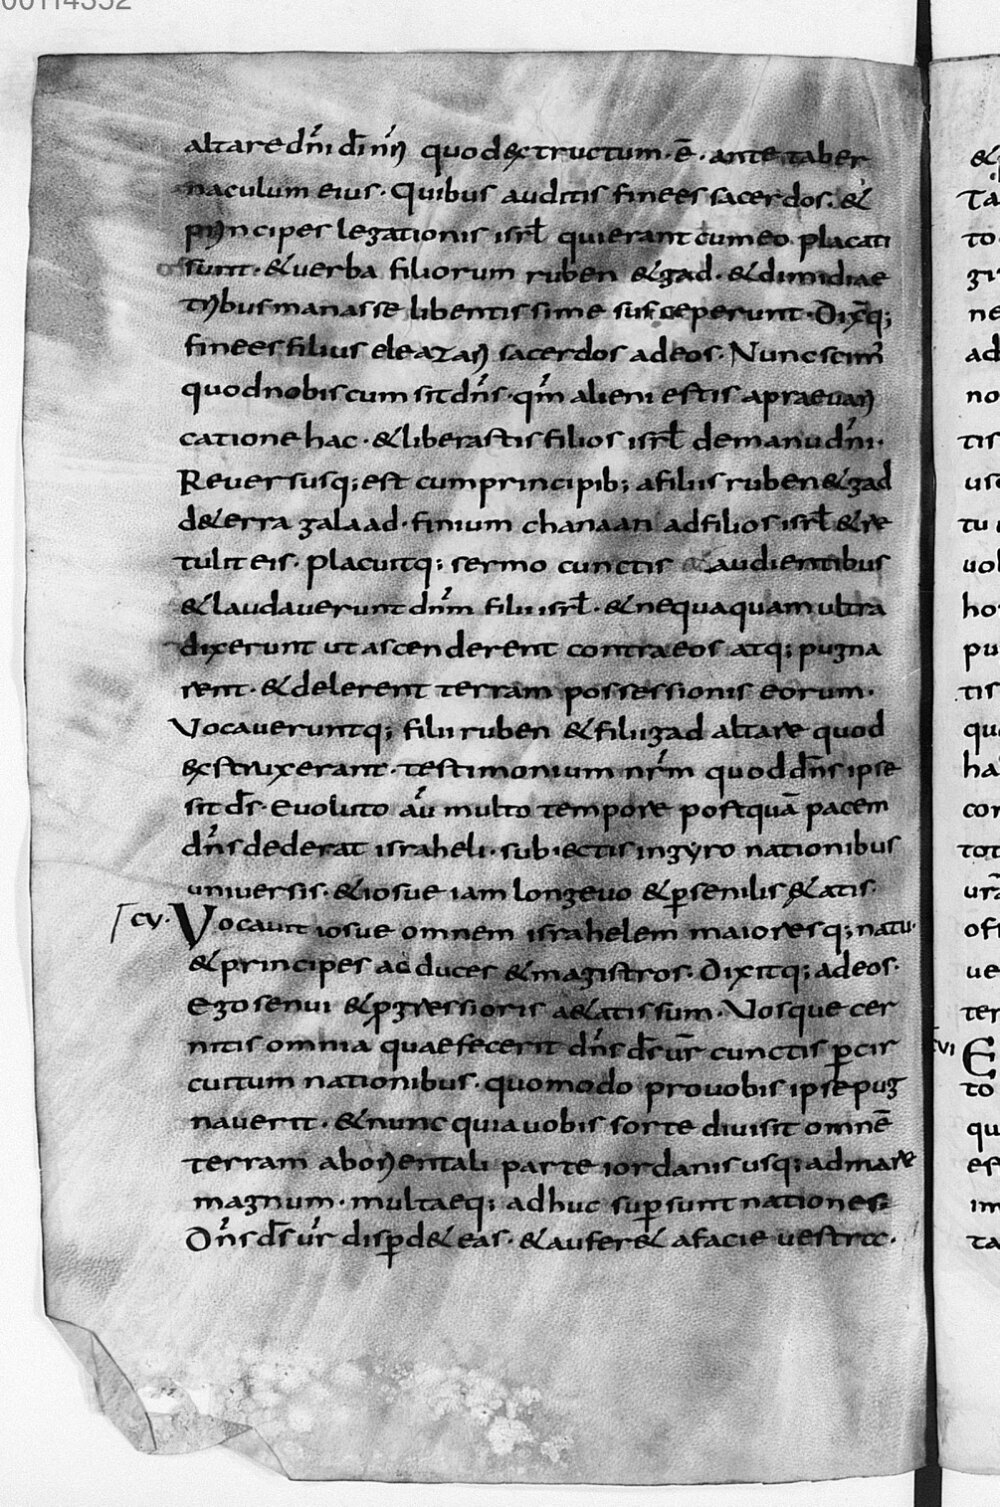 00114352
altare dńi dī nŕi quod extructum · ē · ante taber
naculum eius · Quibus auditis finees sacerdos · &
principes legationis isrł qui erant cum eo placati
sunt · & verba filiorum ruben & gad · & dimidiae
tribus manasse libentissime susceperunt · Dixq;
finees filius eleazari sacerdos ad eos · Nunc scim̃
quod nobiscum sit dńs · qḿ alieni estis a praevari
catione hac · & liberastis filios isrł de manu dńi ·
Reversusq; est cum principib; a filiis ruben & gad
de terra galaad · finium chanaan ad filios isrł & re
tulit eis · placuitq; sermo cunctis audientibus
& laudaverunt dńm filii isrł · & nequaquam ultra
dixerunt ut ascenderent contra eos atq; pugna
rent · & delerent terram possessionis eorum ·
Vocaveruntq; filii ruben & filii gad altare quod
exstruxerant · testimonium nŕm quod dńs ipse
sit dś · Evoluto aú multo tempore postquā pacem
dńs dederat israheli · subiectis in gyro nationibus
universis · & iosue iam longevo & ꝑsenilis &atis ·
cv · Vocavit iosue omnem israhelem maioresq; natu ·
& principes ac duces & magistros · Dixitq; ad eos ·
Ego senui & ꝓgressioris a&atis sum · Vosque cer
nitis omnia quae fecerit dńs dś ur̄ cunctis ꝑ cir
cuitum nationibus · quomodo pro vobis ipse pug
naverit · & nunc quia vobis sorte divisit omnē
terram ab orientali parte iordanis usq; ad mare
magnum · multaeq; adhuc suꝑsunt nationes ·
Dńs dś ur̄ disꝑd& eas · & aufer& a facie vestra ·